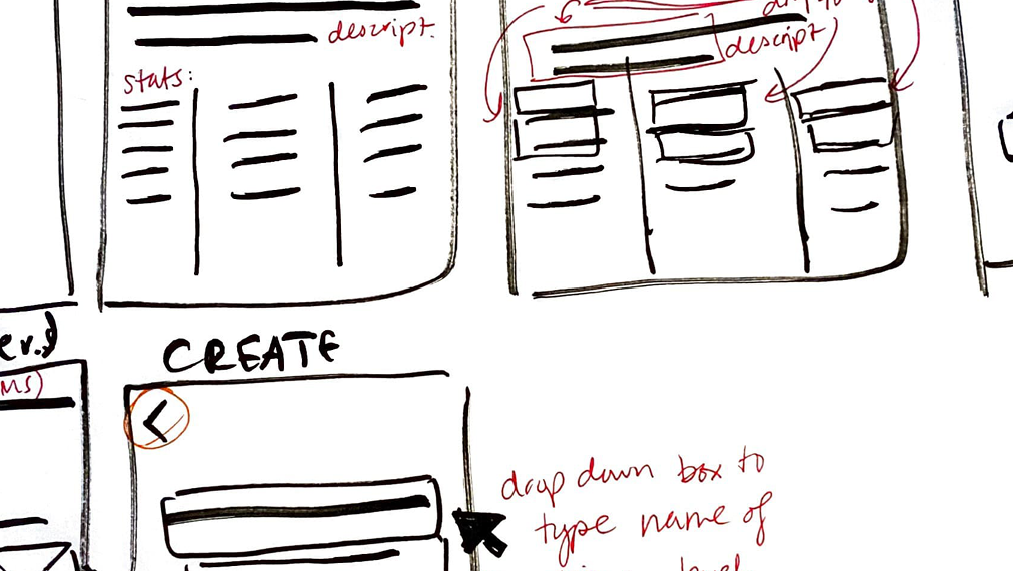 descript.
descript
stats:
CREATE
drop down box to
type name of